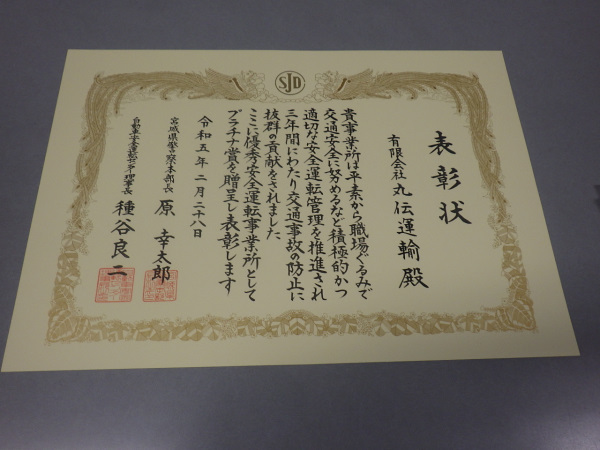 SJD
表彰状
有限会社 丸伝運輸 殿
貴事業所は平素から職場ぐるみで
交通安全に努めるなど積極的かつ
適切な安全運転管理を推進され
三年間にわたり交通事故の防止に
抜群の貢献をされました
ここに優秀安全運転事業所として
プラチナ賞を贈呈し表彰します
令和五年二月二十八日
宮城県警察本部長 原 幸太郎
自動車安全運転センター理事長 種谷良二